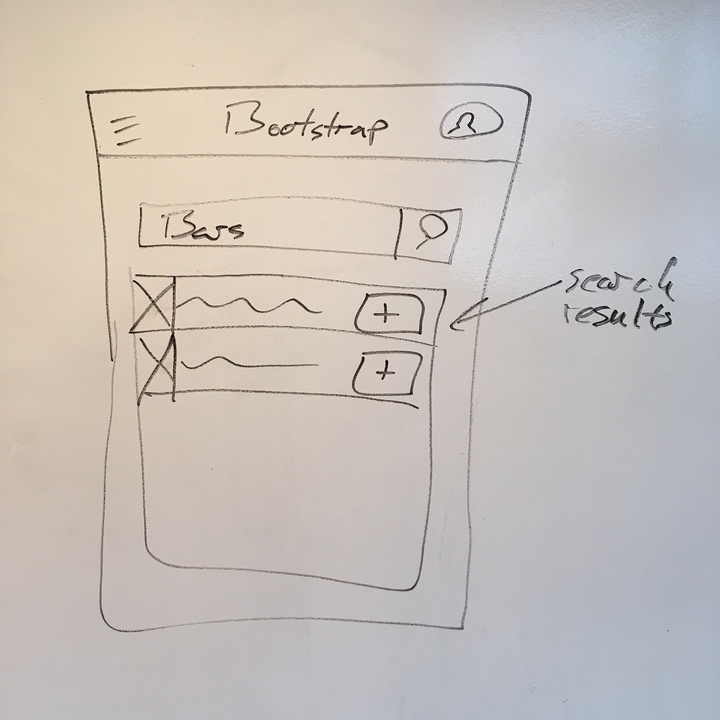 Bootstrap
Bars
search
results
+
+